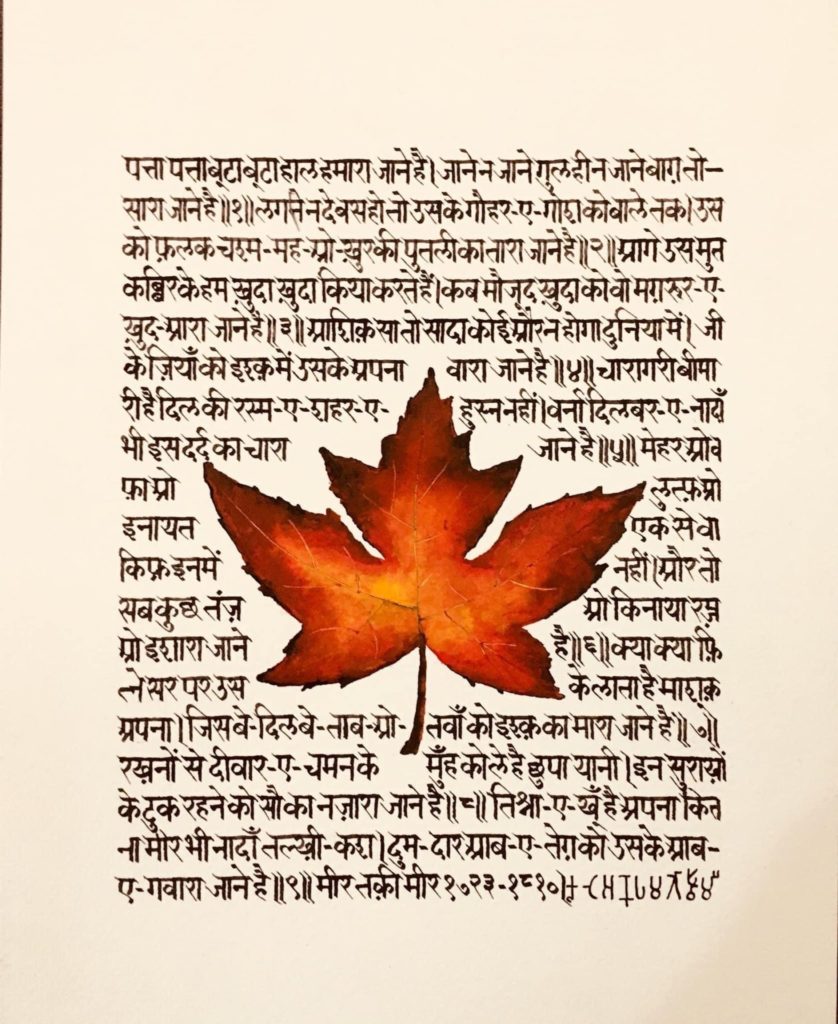 पत्ता पत्ता बूटा बूटा हाल हमारा जाने है। जाने न जाने गुल ही न जाने बाग़ तो–
सारा जाने है॥१॥ लगने न दे बस हो तो उसके गौहर-ए-गोश को बाले तक। उस
को फ़लक चश्म-मह-ओ-ख़ुर की पुतली का तारा जाने है॥२॥ आगे उस मुत
कब्बिर के हम ख़ुदा ख़ुदा किया करते हैं। कब मौजूद ख़ुदा को वो मग़रूर-ए-
ख़ुद-आरा जाने है॥३॥ आशिक़ सा तो सादा कोई और न होगा दुनिया में। जी
के ज़ियाँ को इश्क़ में उसके अपना वारा जाने है॥४॥ चारागरी बीमा
री है दिल की रस्म-ए-शहर-ए-हुस्न नहीं। वर्ना दिलबर-ए-नादाँ
भी इस दर्द का चारा जाने है॥५॥ मेहर ओ व
फ़ा ओ लुत्फ़ ओ
इनायत एक से वा
किफ़ इनमें नहीं। और तो
सब कुछ तंज़ ओ किनाया रम्ज़
ओ इशारा जाने है॥६॥ क्या क्या फ़ि
त्ने सर पर उस के लाता है माशूक़
अपना। जिस बे-दिल बे-ताब-ओ-तवाँ को इश्क़ का मारा जाने है॥७॥
रख़नों से दीवार-ए-चमन के मुँह को ले है छुपा यानी। इन सुराख़ों
के टुक रहने को सौ का नज़ारा जाने है॥८॥ तिश्ना-ए-ख़ूँ है अपना कित
ना मीर भी नादाँ तल्ख़ी-कश। दुम-दार आब-ए-तेग़ को उसके आब-
ए-गवारा जाने है॥९॥ मीर तक़ी मीर १७२३-१८१०।